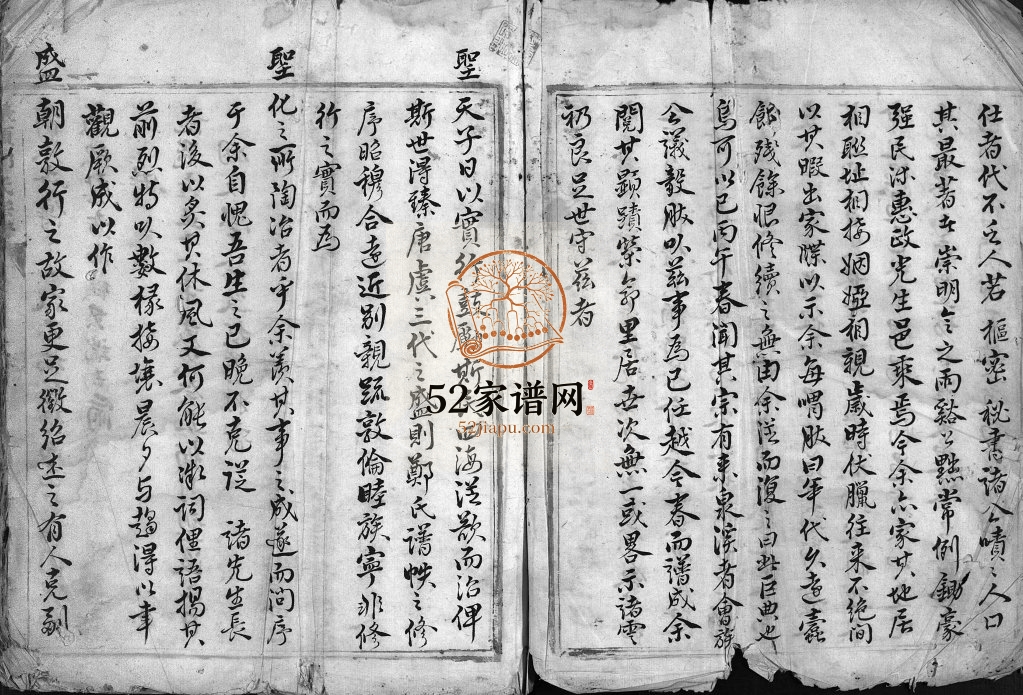 仕者代不乏人若 樞密 秘書諸公嘖々人口
其最著者崇明令之雨谿公黜常例鋤豪
强民沐惠政光生邑乘焉今余亦家其地居
相聯址相接姻婭相親歲時伏臘往来不絶間
以其暇出家牒以示余每喟肰曰年代久遠蠹
餘殘餘恨修續之無由余從而復之曰此巨典也
烏可以已丙午春聞其宗有来泉溪者會族
公議毅肰以茲事為己任越今春而譜成余
閱其顕蹟榮命里居世次無一或畧示諸雲
礽良足世守茲者
聖
天子日以實行鼓勵斯 四海從欲而治俾
斯世得臻唐虞三代之盛則鄭氏譜帙之修
序昭穆合遠近别親疏敦倫睦族寧非修
行之實而為
聖
化之所陶冶者乎余羨其事之成遂而問序
于余自愧吾生之已晚不克從 諸先生長
者後以炙其休風又何能以漱詞俚語揚其
前烈特以數椽接壤晨夕与趨得以聿
觀厥成以作
盛
朝敦行之故家更足徵紹述之有人克副
52家谱网
52jiapu.com